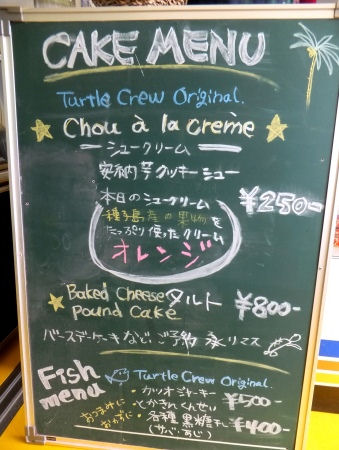 CAKE MENU
Turtle Crew Original.
Chou à la crème
シュークリーム
安納芋クッキーシュー
本日のシュークリーム ¥250-
種子島産の果物を
たっぷり使ったクリーム
オレンジ
Baked Cheese タルト
pound Cake ¥800-
バースデーケーキなど、ご予約 承リマス
Fish menu
Turtle Crew Original.
おつまみに おかずに
・カツオジャーキー ¥500-
・とかきれくんせい
・各種 黒糖干し ¥400-
(サバ・あじ)